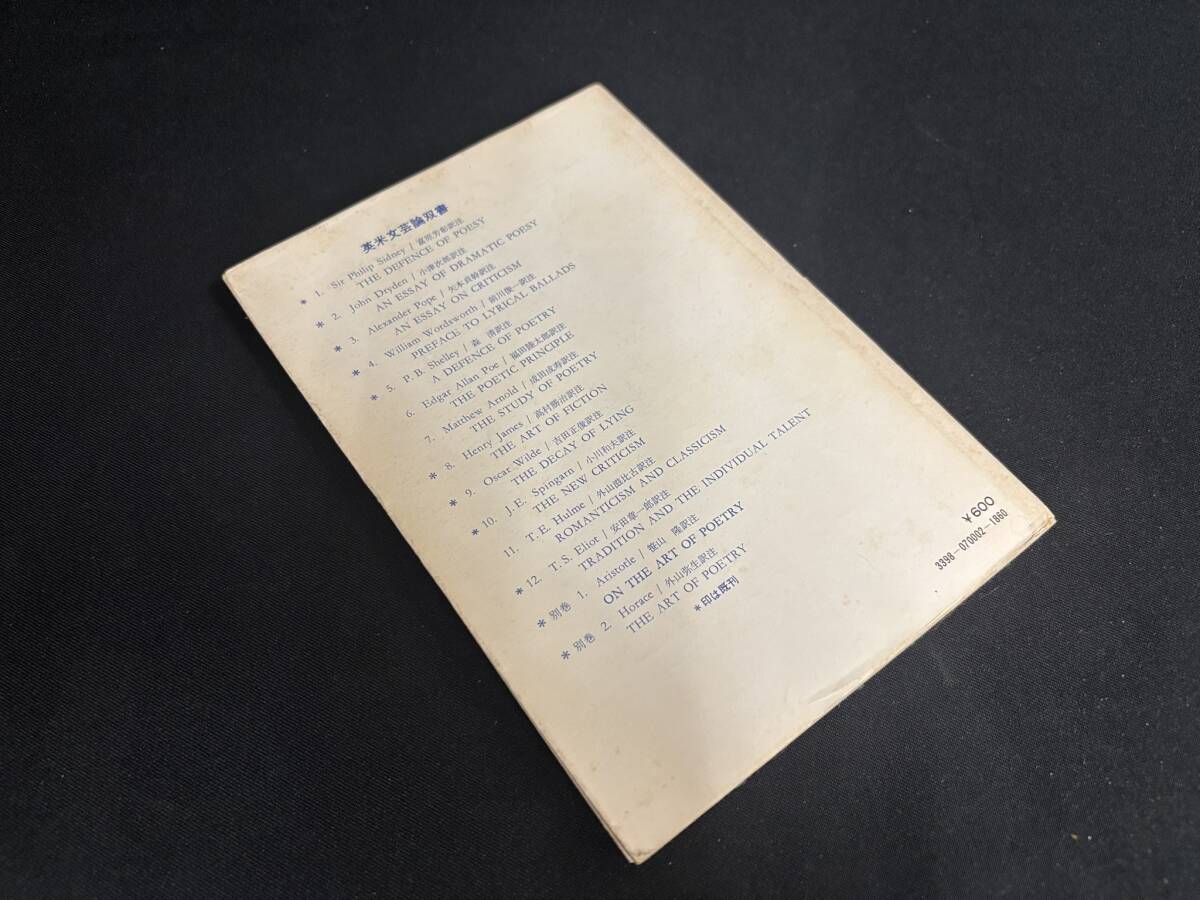 英米文芸論双書
* 1. Sir Philip Sidney / 富原芳彰訳注
THE DEFENCE OF POESY
* 2. John Dryden / 小津次郎訳注
AN ESSAY OF DRAMATIC POESY
* 3. Alexander Pope / 矢本貞幹訳注
AN ESSAY ON CRITICISM
* 4. William Wordsworth / 前川俊一訳注
PREFACE TO LYRICAL BALLADS
* 5. P. B. Shelley / 森 清訳注
A DEFENCE OF POETRY
6. Edgar Allan Poe / 福田陸太郎訳注
THE POETIC PRINCIPLE
7. Matthew Arnold / 成田成寿訳注
THE STUDY OF POETRY
* 8. Henry James / 高村勝治訳注
THE ART OF FICTION
* 9. Oscar Wilde / 吉田正俊訳注
THE DECAY OF LYING
* 10. J. E. Spingarn / 小川和夫訳注
THE NEW CRITICISM
11. T. E. Hulme / 外山滋比古訳注
ROMANTICISM AND CLASSICISM
* 12. T. S. Eliot / 安田章一郎訳注
TRADITION AND THE INDIVIDUAL TALENT
* 別巻 1. Aristotle / 笹山 隆訳注
ON THE ART OF POETRY
* 別巻 2. Horace / 外山弥生訳注
THE ART OF POETRY
*印は既刊
￥600
3398-070002-1860